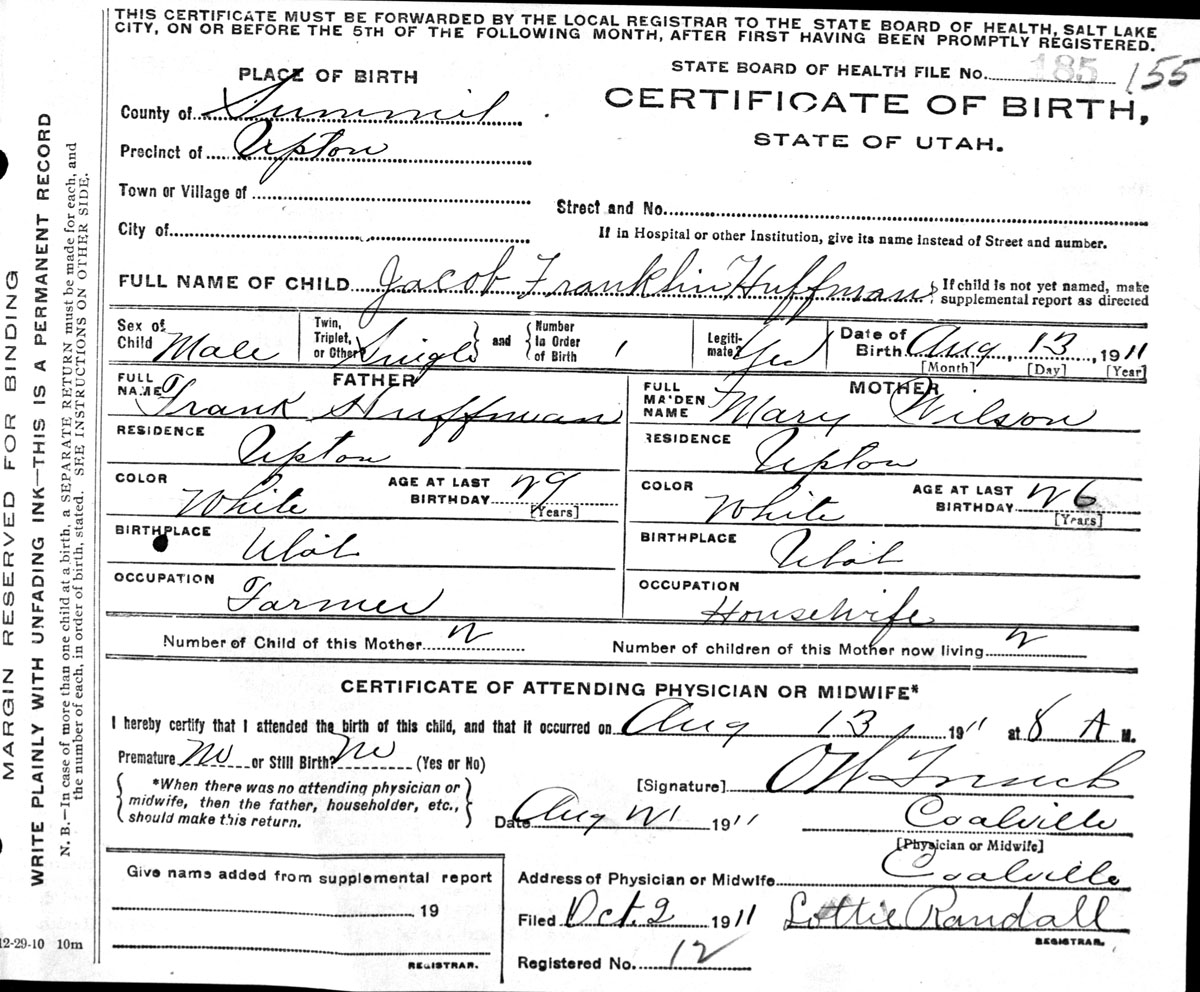 THIS CERTIFICATE MUST BE FORWARDED BY THE LOCAL REGISTRAR TO THE STATE BOARD OF HEALTH, SALT LAKE
CITY, ON OR BEFORE THE 5TH OF THE FOLLOWING MONTH, AFTER FIRST HAVING BEEN PROMPTLY REGISTERED.
STATE BOARD OF HEALTH FILE No. 185 155
CERTIFICATE OF BIRTH,
STATE OF UTAH.
PLACE OF BIRTH
County of Summit
Precinct of Upton
Town or Village of
City of
Street and No.
If in Hospital or other Institution, give its name instead of Street and number.
FULL NAME OF CHILD Jacob Franklin Huffman
If child is not yet named, make
supplemental report as directed
Sex of Child Male
Twin, Triplet, or Other? Single and Number In Order of Birth 1
Legitimate? Yes
Date of Birth Aug, 13, 1911
[Month] [Day] [Year]
FATHER
FULL NAME Frank Huffman
RESIDENCE Upton
COLOR White AGE AT LAST BIRTHDAY 29 [Years]
BIRTHPLACE Utah
OCCUPATION Farmer
MOTHER
FULL MAIDEN NAME Mary Wilson
RESIDENCE Upton
COLOR White AGE AT LAST BIRTHDAY 26 [Years]
BIRTHPLACE Utah
OCCUPATION Housewife
Number of Child of this Mother 2 Number of children of this Mother now living 2
CERTIFICATE OF ATTENDING PHYSICIAN OR MIDWIFE*
I hereby certify that I attended the birth of this child, and that it occurred on Aug 13 1911 at 8 A M.
Premature No or Still Birth? No (Yes or No)
*When there was no attending physician or
midwife, then the father, householder, etc.,
should make this return.
[Signature]
Date Aug 21 1911 Coalville
[Physician or Midwife]
Address of Physician or Midwife Coalville
Filed Oct. 2 1911 Lottie Randall
REGISTRAR.
Registered No. 12
Give name added from supplemental report
19
REGISTRAR.
12-29-10 10m
MARGIN RESERVED FOR BINDING
WRITE PLAINLY WITH UNFADING INK—THIS IS A PERMANENT RECORD
N. B.—In case of more than one child at a birth, a SEPARATE RETURN must be made for each, and
the number of each, in order of birth, stated. SEE INSTRUCTIONS ON OTHER SIDE.